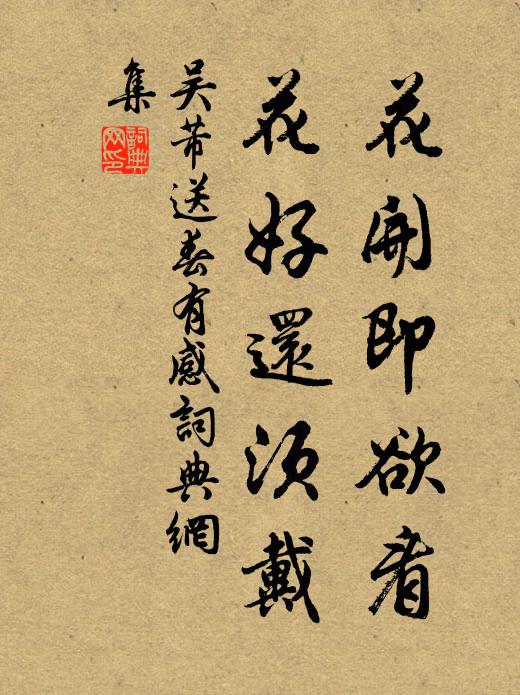 花開即欲看
花好還須戴
吴芾送春有感詞典網
集
詞典網印